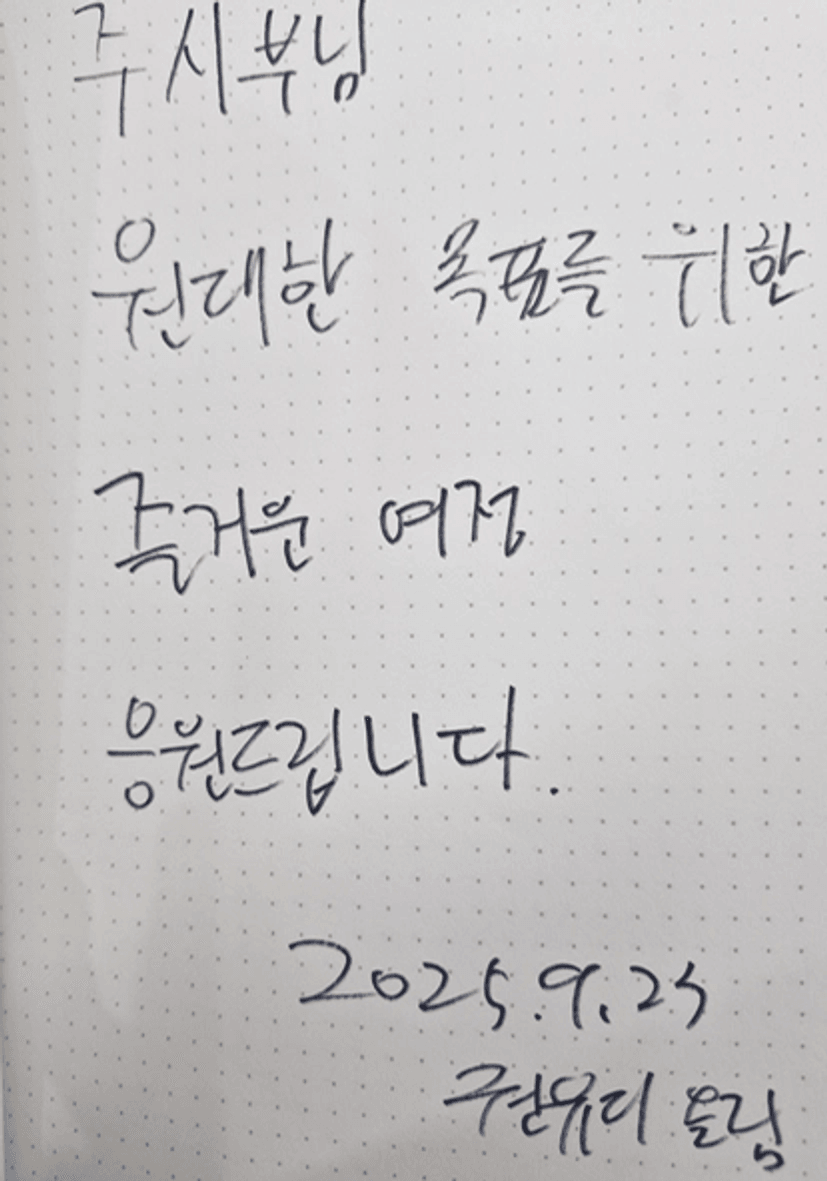 주시부님
원대한 목표를 위한
즐거운 여정
응원드립니다.
2025.9.25
권유디 올림